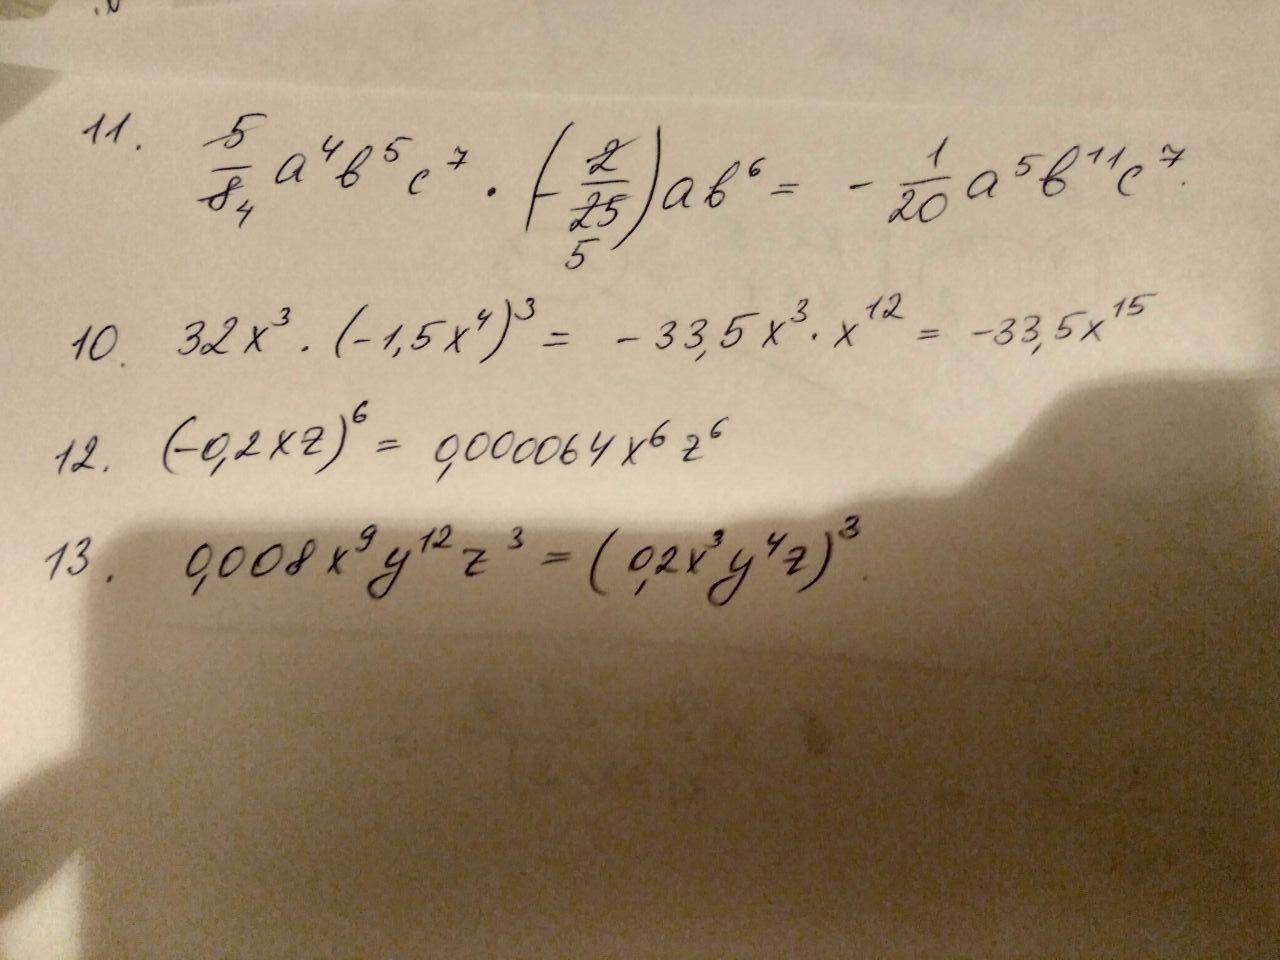 11. 5/8 4 a⁴b⁵c⁷ · (-2/25 5)ab⁶ = -1/20 a⁵b¹¹c⁷.
10. 32x³ · (-1,5x⁴)³ = -33,5x³ · x¹² = -33,5x¹⁵
12. (-0,2xz)⁶ = 0,000064x⁶z⁶
13. 0,008x⁹y¹²z³ = (0,2x³y⁴z)³.